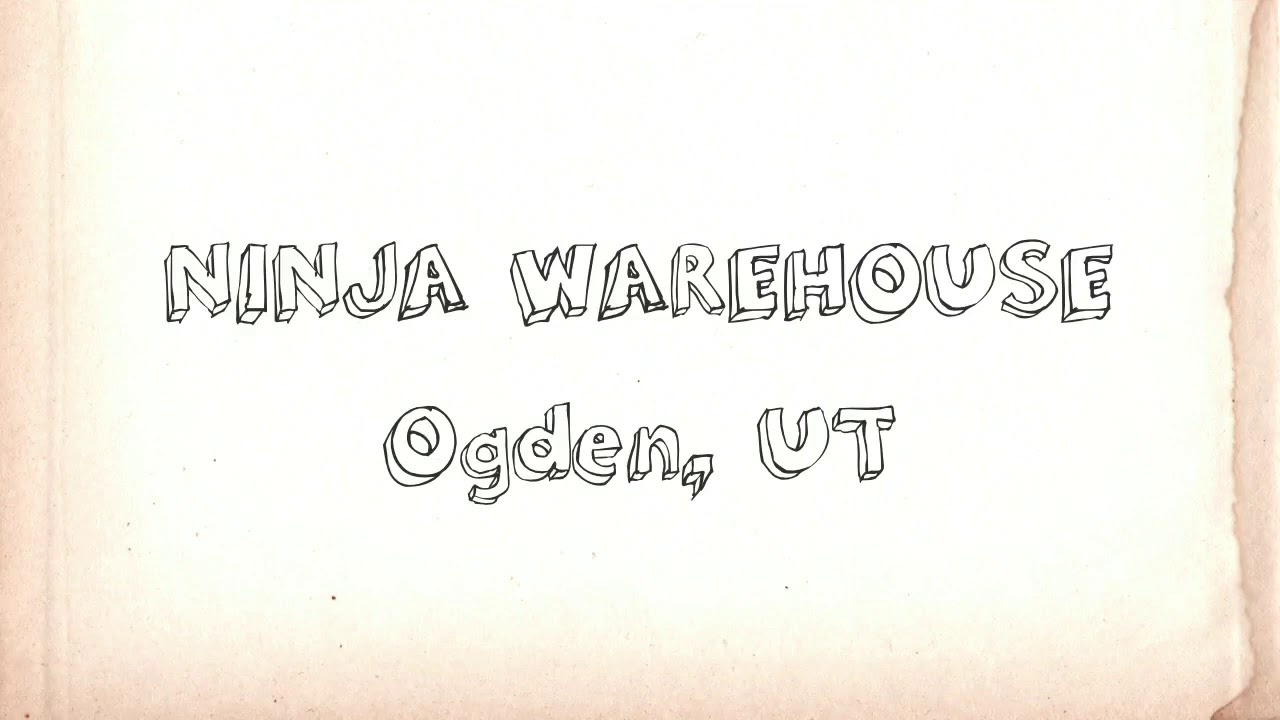 NINJA WAREHOUSE
Ogden, UT